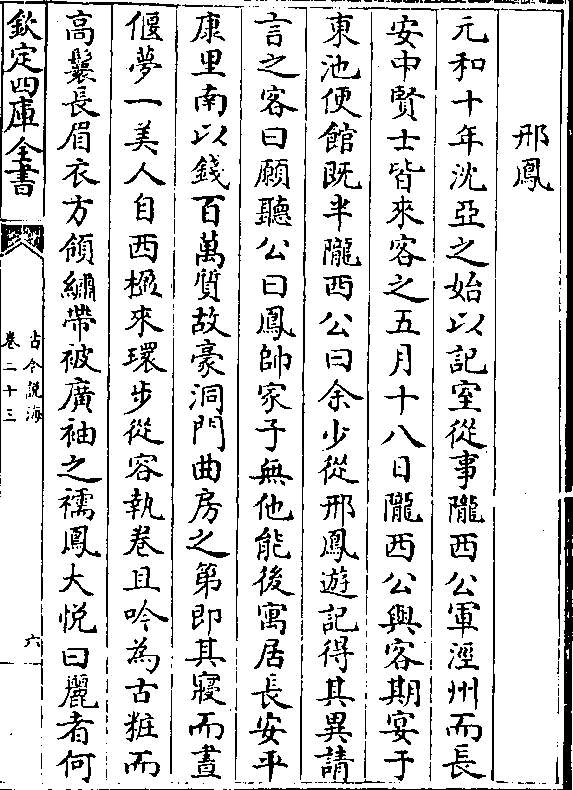 邢鳳
元和十年沈亞之始以記室從事隴西公軍涇州而長
安中賢士皆來客之五月十八日隴西公與客期宴于
東池便館既半隴西公曰余少從邢鳳遊記得其異請
言之客曰願聽公曰鳳帥家子無他能後寓居長安平
康里南以錢百萬質故豪洞門曲房之第即其寢而晝
偃夢一美人自西楹來環步從容執卷且吟為古粧而
高鬟長眉衣方領繡帶被廣袖之襦鳳大悅曰麗者何
欽定四庫全書
古今說海
卷二十三
六